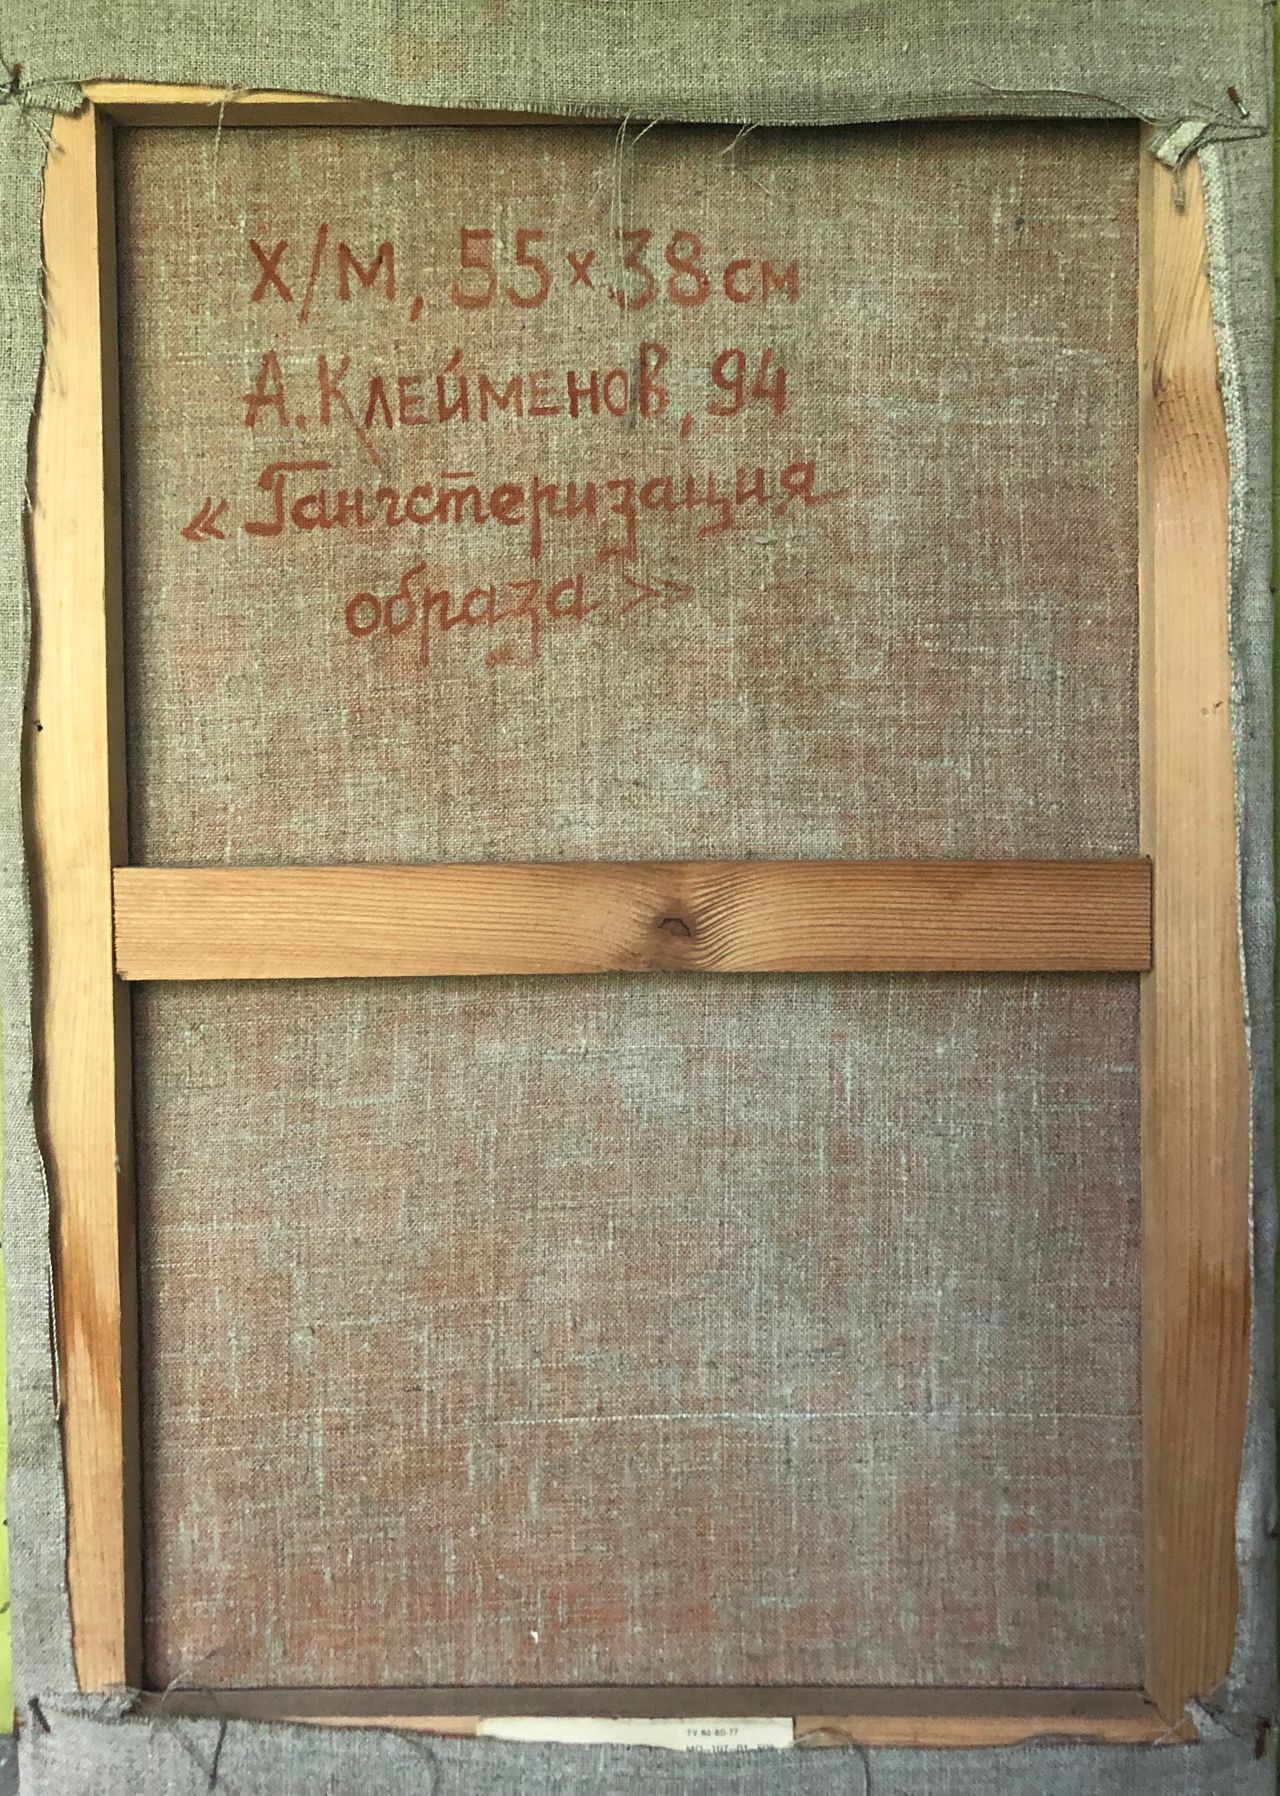 Х/М, 55×38см
А. Клейменов, 94
«Гангстеризация
образа»
ТУ 86-80-77